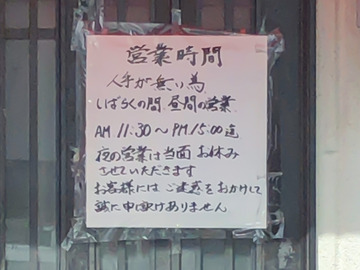 営業時間
人手が無い為
しばらくの間 昼間の営業
AM 11:30～PM 15:00迄
夜の営業は当面 お休み
させていただきます
お客様には ご迷惑をおかけして
誠に申し訳けありません